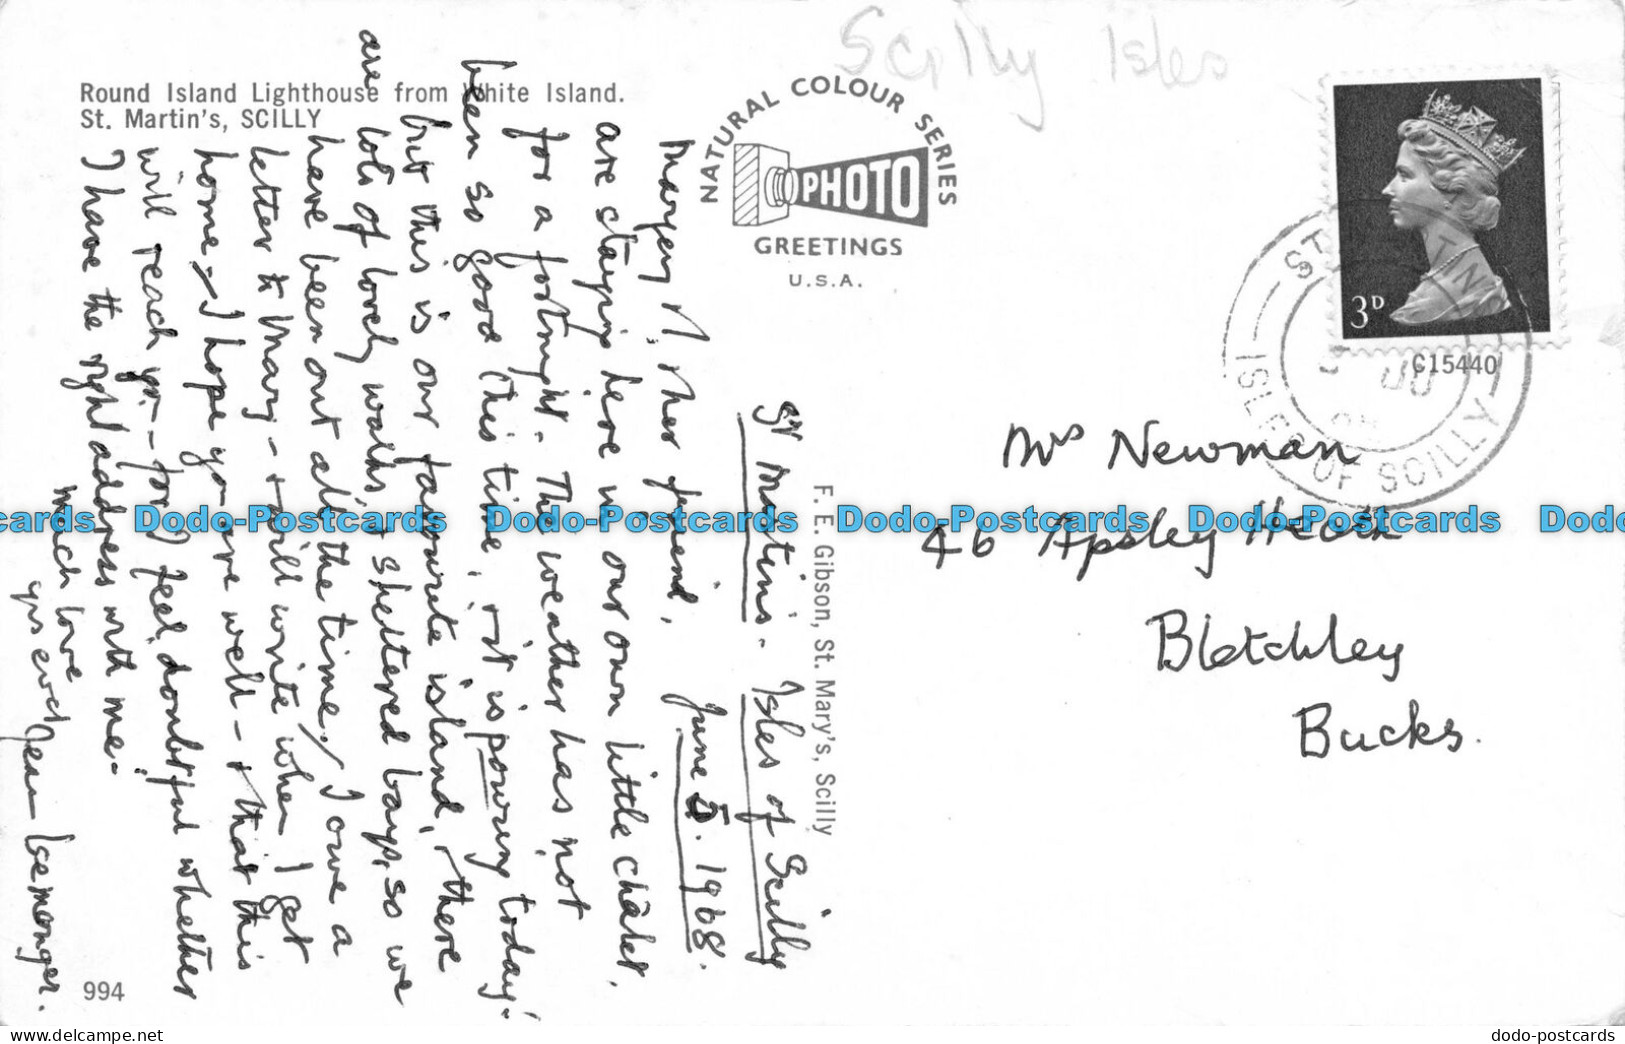 Scilly Isles
Round Island Lighthouse from White Island.
St. Martin's, SCILLY
NATURAL COLOUR SERIES
PHOTO
GREETINGS
U.S.A.
3D
C15440
ST. MARTINS
ISLES OF SCILLY
F. E. Gibson, St. Mary's, Scilly
994
St Martins. Isles of Scilly
June 5. 1968.
Margery N. & her friend,
are staying here in our own little chalet,
for a fortnight. The weather has not
been so good this time, & it is pouring today:
but this is our favourite island, & there
are lots of lovely walks, & sheltered bays, so we
have been out all the time. / I owe a
letter to Mary - & will write when I get
home & I hope you are well - & that this
will reach you - for I feel doubtful whether
I have the right address with me.
Much love
yrs ever Jean Isemonger.
Mrs Newman
46 Apsley Heath
Bletchley
Bucks.
cards Dodo-Postcards Dodo-Postcards Dodo-Postcards Dodo-Postcards Dodo
dodo-postcards.com
dodo-postcards